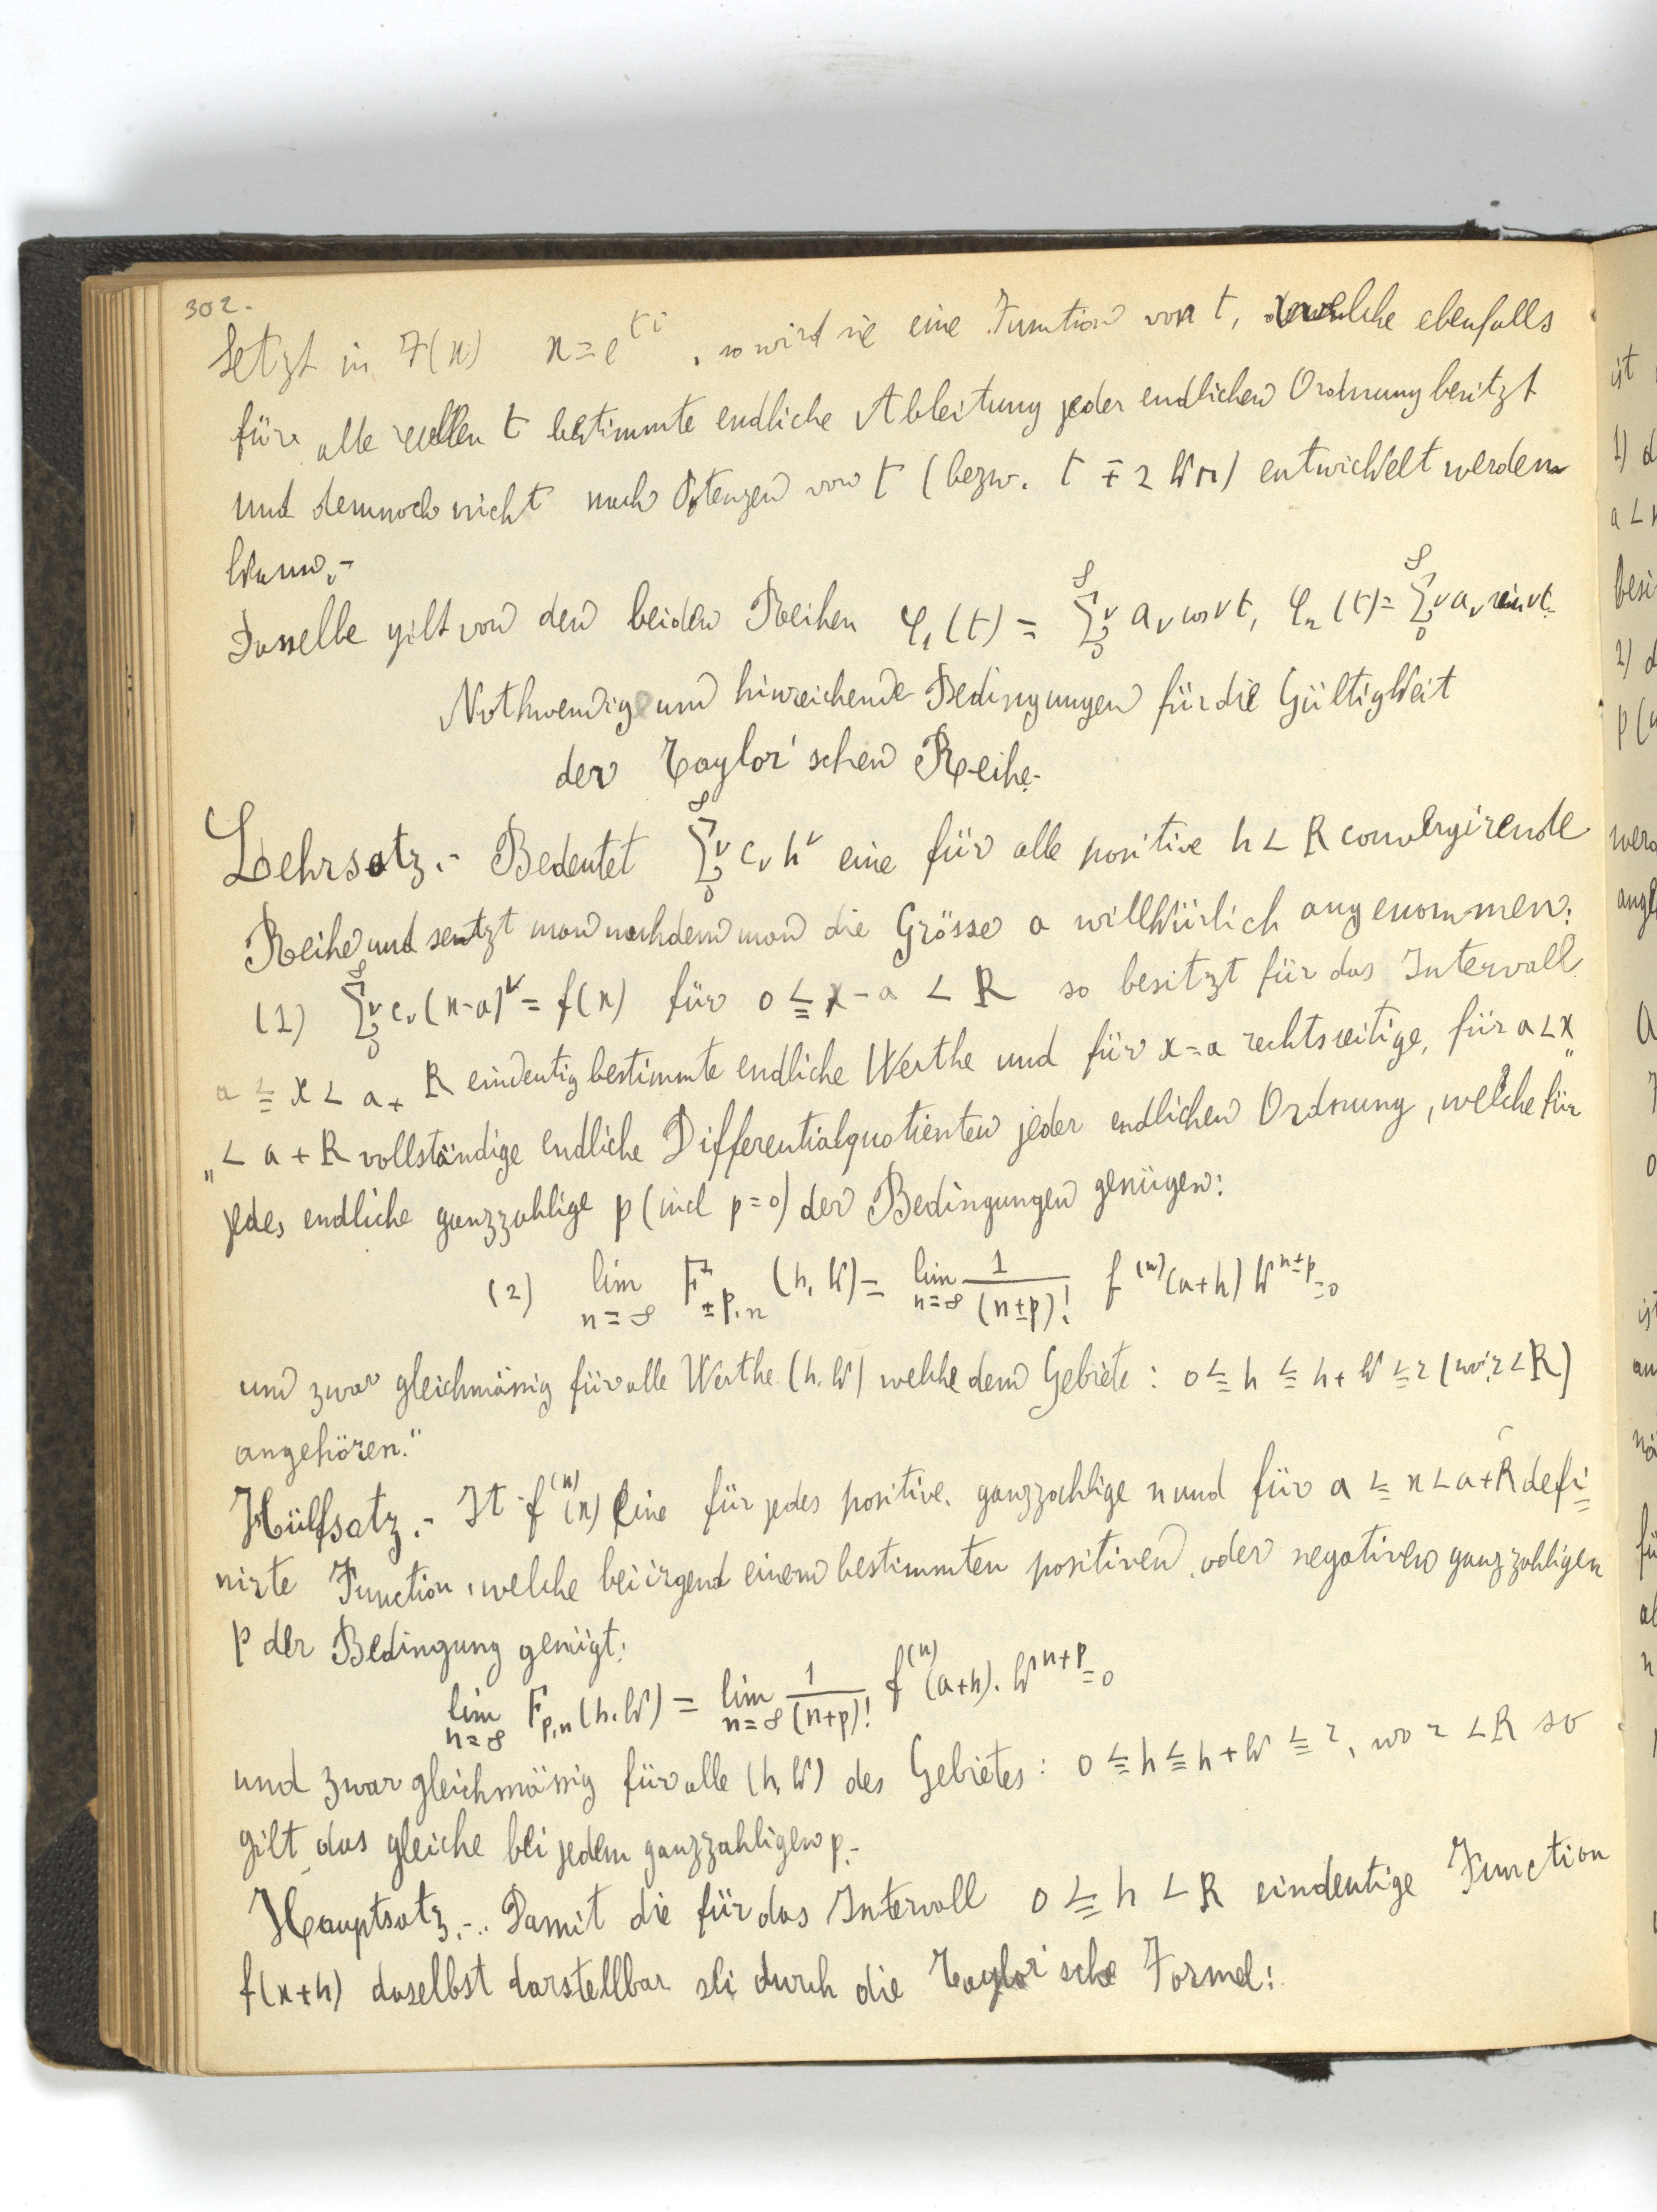 302.
Setzt in F(x) x = e^{ti}, so wird sie eine Function von t, welche ebenfalls
für alle reellen t bestimmte endliche Ableitung jeder endlichen Ordnung besitzt
und dennoch nicht nach Potenzen von t (bezw. t ∓ 2kπ) entwickelt werden
kann.-
Dasselbe gilt von den beiden Reihen φ₁(t) = ∑_0^∞ ν a_ν cos νt, φ₂(t) = ∑_0^∞ ν a_ν sin νt.
Nothwendige und hinreichende Bedingungen für die Gültigkeit
der Taylor'schen Reihe.-
Lehrsatz.- Bedeutet ∑_0^∞ ν c_ν h^ν eine für alle positive h < R convergirende
Reihe und setzt man nachdem man die Grösse a willkürlich angenommen:
(1) ∑_0^∞ ν c_ν (x-a)^ν = f(x) für 0 ≦ x-a < R so besitzt für das Intervall
a ≦ x < a+R eindeutig bestimmte endliche Werthe und für x=a rechtsseitige, für a<x„
„< a+R vollständige endliche Differentialquotienten jeder endlichen Ordnung, welche für
jedes endliche ganzzahlige p (incl p=0) der Bedingungen genügen:
(2) lim_{n=∞} F_{±p,n} (h, k) = lim_{n=∞} 1/(n±p)! f^{(n)}(a+h) k^{n±p} = 0
und zwar gleichmässig für alle Werthe (h, k) welche dem Gebiete: 0 ≦ h ≦ h+k ≦ r (wo r < R)
angehören."
Hülfsatz.- Ist f^{(n)}(x) eine für jedes positive, ganzzahlige n und für a ≦ x < a+R defi=
nirte Function, welche bei irgend einem bestimmten positiven oder negativen ganzzahligen
p der Bedingung genügt:
lim_{n=∞} F_{p,n}(h,k) = lim_{n=∞} 1/(n+p)! f^{(n)}(a+h). k^{n+p} = 0
und zwar gleichmässig für alle (h,k) des Gebietes: 0 ≦ h ≦ h+k ≦ r, wo r < R so
gilt das gleiche bei jedem ganzzahligen p.-
Hauptsatz.-. Damit die für das Intervall 0 ≦ h < R eindeutige Function
f(x+h) daselbst darstellbar sei durch die Taylor'sche Formel: